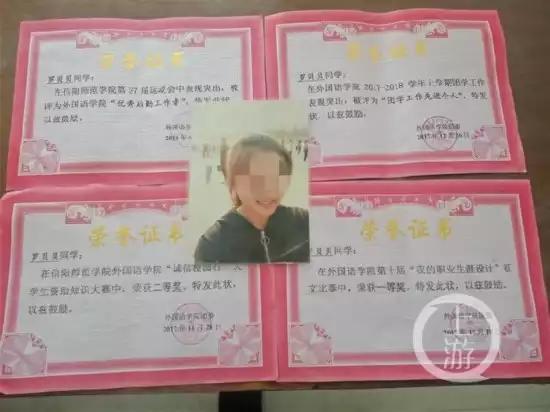 荣誉证书
罗贝贝同学:
在信阳师范学院第37届运动会中表现突出,被
评为外国语学院"优秀后勤工作者",特发此状,
以兹鼓励。
外国语学
荣誉证书
罗贝贝同学:
在外国语学院2017-2018学年上学期团学工作
表现突出,被评为"团学工作先进个人",特发
状,以兹鼓励。
外国语学院团委
荣誉证书
罗贝贝同学:
在信阳师范学院外国语学院"诚信校园行"大
学生资助知识大赛中,荣获二等奖,特发此状,
以兹鼓励。
外国语学院团委
荣誉证书
罗贝贝同学:
在外国语学院第十届"我的职业生涯设计"征
文比赛中,荣获一等奖,特发此状,以兹鼓励。
外国语学院
上游